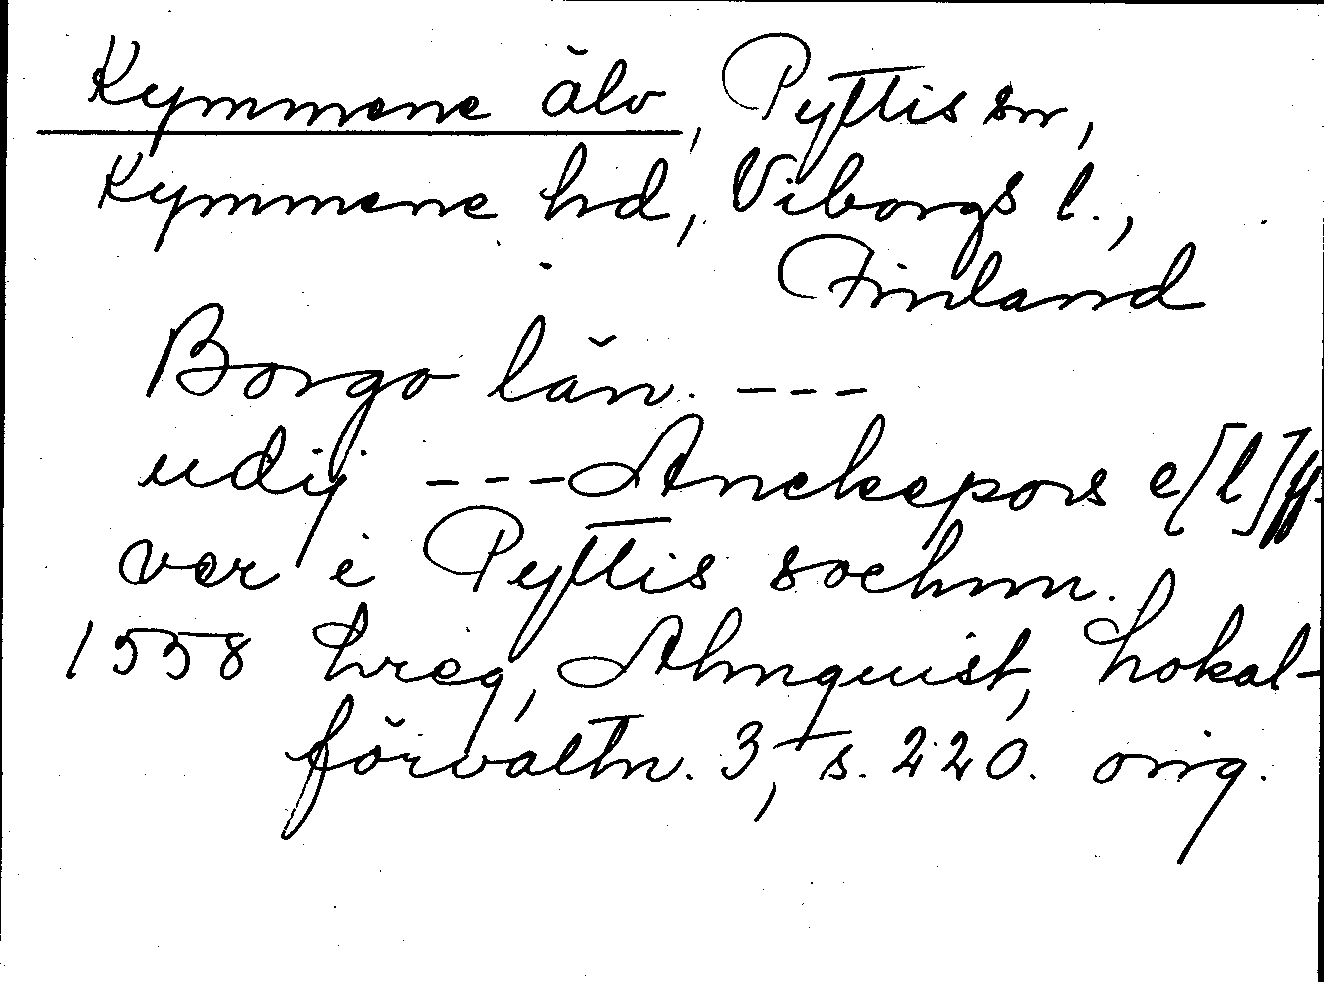 Kymmene älv, Pyttis sn,
Kymmene hd, Viborgs l.,
Finland
Borgo län. ---
udij --- Anckepors e[l]ff-
ver i Pyttis sochnn.
1558 hreg, Almquist, Lokal-
förvaltn. 3, s. 220. orig.